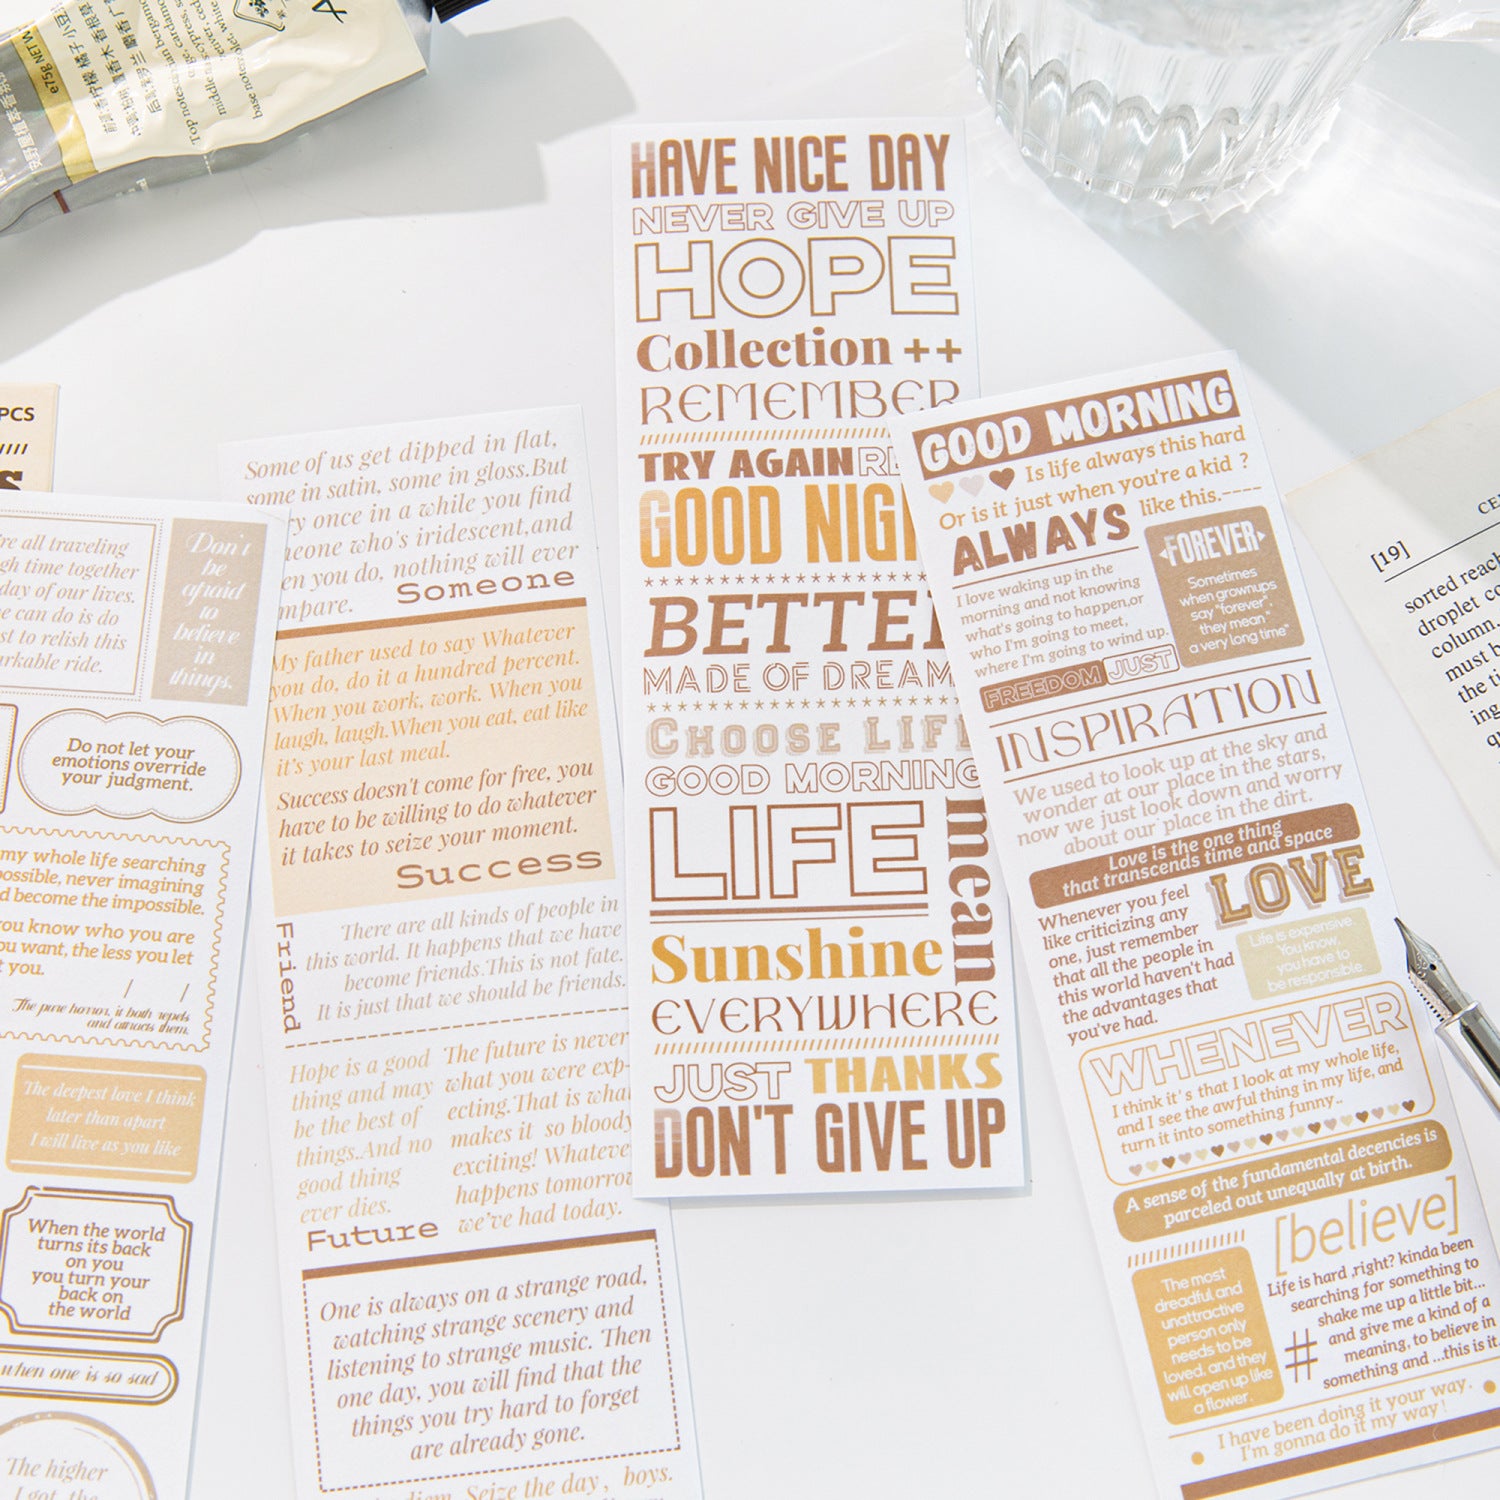 e75g NET W
Top notes
middle
base notes
PCS
're all traveling
gh time together
day of our lives.
e can do is do
st to relish this
rkable ride.
Don't
be
afraid
to
believe
in
things.
Do not let your
emotions override
your judgment.
my whole life searching
possible, never imagining
d become the impossible.
ou know who you are
ou want, the less you let
t you.
The pure horror, it both repels
and attracts them.
The deepest love I think
later than apart
I will live as you like
When the world
turns its back
on you
you turn your
back on
the world
when one is so sad
The higher
I got, the
Some of us get dipped in flat,
some in satin, some in gloss.But
ry once in a while you find
meone who's iridescent,and
en you do, nothing will ever
mpare.
Someone
My father used to say Whatever
you do, do it a hundred percent.
When you work, work. When you
laugh, laugh.When you eat, eat like
it's your last meal.
Success doesn't come for free, you
have to be willing to do whatever
it takes to seize your moment.
Success
Friend
There are all kinds of people in
this world. It happens that we have
become friends.This is not fate.
It is just that we should be friends.
Hope is a good
thing and may
be the best of
things.And no
good thing
ever dies.
Future
The future is never
what you were exp-
ecting.That is what
makes it so bloody
exciting! Whateve
happens tomorro
we've had today.
One is always on a strange road,
watching strange scenery and
listening to strange music. Then
one day, you will find that the
things you try hard to forget
are already gone.
diem. Seize the day, boys.
HAVE NICE DAY
NEVER GIVE UP
HOPE
Collection ++
REMEMBER
TRY AGAIN RE
GOOD NIG
BETTE
MADE OF DREAM
CHOOSE LIF
GOOD MORNING
LIFE
mean
Sunshine
EVERYWHERE
JUST THANKS
DON'T GIVE UP
GOOD MORNING
Is life always this hard
Or is it just when you're a kid ?
ALWAYS like this.----
I love waking up in the
morning and not knowing
what's going to happen,or
who I'm going to meet,
where I'm going to wind up.
FOREVER
Sometimes
when grownups
say "forever,"
they mean
a very long time"
FREEDOM JUST
INSPIRATION
We used to look up at the sky and
wonder at our place in the stars,
now we just look down and worry
about our place in the dirt.
Love is the one thing
that transcends time and space
Whenever you feel
like criticizing any
one, just remember
that all the people in
this world haven't had
the advantages that
you've had.
LOVE
Life is expensive.
You know,
you have to
be responsible.
WHENEVER
I think it's that I look at my whole life,
and I see the awful thing in my life, and
turn it into something funny..
A sense of the fundamental decencies is
parceled out unequally at birth.
The most
dreadful and
unattractive
person only
needs to be
loved, and they
will open up like
a flower.
[believe]
Life is hard ,right? kinda been
searching for something to
shake me up a little bit...
and give me a kind of a
meaning, to believe in
something and ...this is it.
#
I have been doing it your way.
I'm gonna do it my way!
[19]
CE
sorted reac
droplet co
column.
must b
the ti
ing
qu